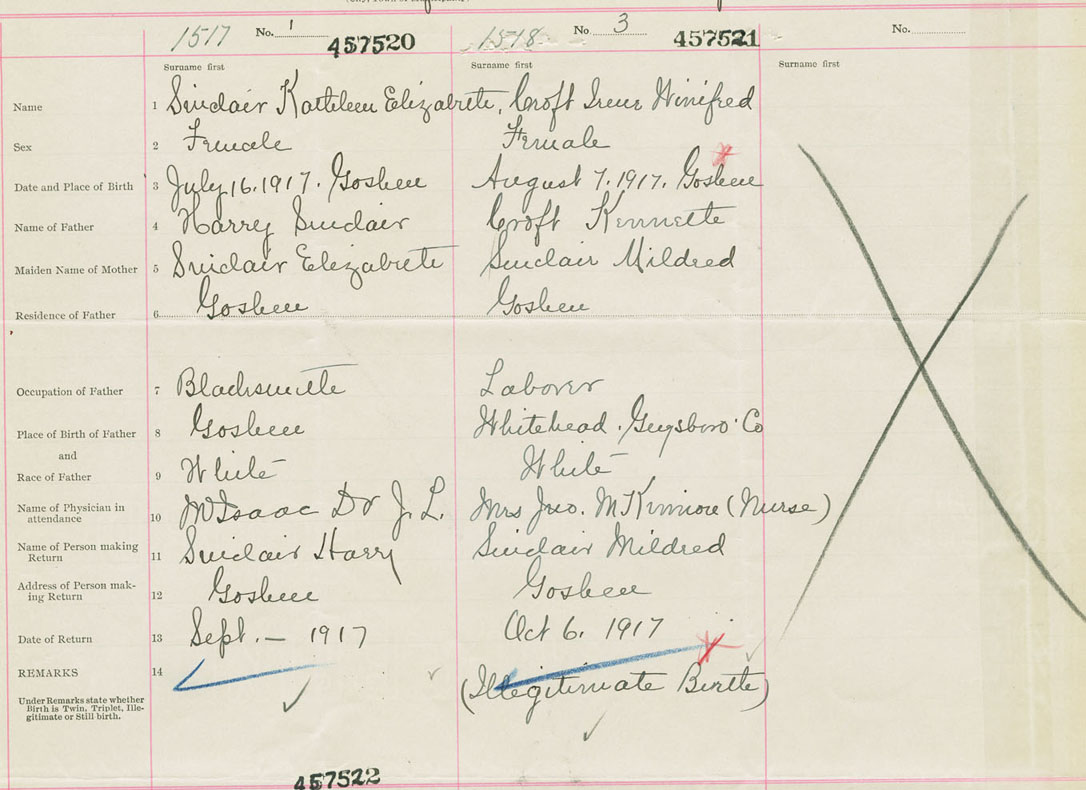 1517 No. 1 457520 1518 No. 3 457521 No.
Surname first Surname first Surname first
Name 1 Sinclair Kathleen Elizabeth, Croft Irene Winifred
Sex 2 Female Female
Date and Place of Birth 3 July 16. 1917. Goshen August 7. 1917. Goshen
Name of Father 4 Harry Sinclair Croft Kennette
Maiden Name of Mother 5 Sinclair Elizabeth Sinclair Mildred
Residence of Father 6 Goshen Goshen
Occupation of Father 7 Blacksmith Laborer
Place of Birth of Father 8 Goshen Whitehead. Guysboro Co
and
Race of Father 9 White White
Name of Physician in
attendance 10 McIsaac Dr J. L. Mrs Jno. McKinnon (Nurse)
Name of Person making
Return 11 Sinclair Harry Sinclair Mildred
Address of Person mak-
ing Return 12 Goshen Goshen
Date of Return 13 Sept. — 1917 Oct 6. 1917
REMARKS 14
(Illegitimate Birth)
Under Remarks state whether
Birth is Twin, Triplet, Ille-
gitimate or Still birth.
457522